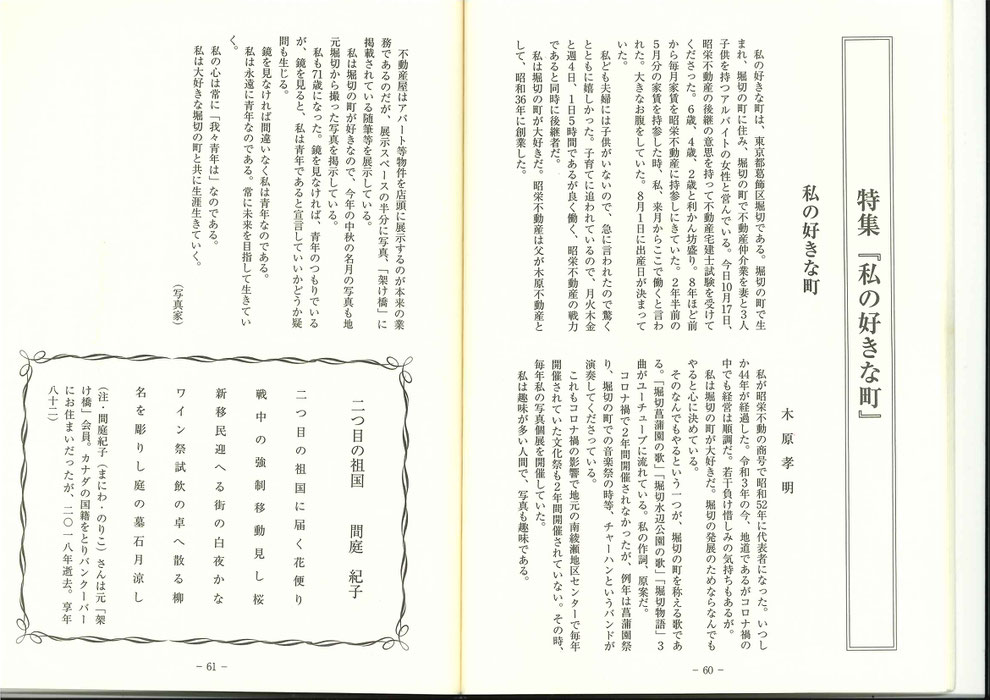 特集『私の好きな町』
私の好きな町
木原孝明
私の好きな町は、東京都葛飾区堀切である。堀切の町で生
まれ、堀切の町に住み、堀切の町で不動産仲介業を妻と3人
子供を持つアルバイトの女性と営んでいる。今日10月17日、
昭栄不動産の後継の意思を持って不動産宅建士試験を受けて
くださった。6歳、4歳、2歳と利かん坊盛り。8年ほど前
から毎月家賃を昭栄不動産に持参しにきていた。2年半前の
5月分の家賃を持参した時、私、来月からここで働くと言わ
れた。大きなお腹をしていた。8月1日に出産日が決まって
いた。
私ども夫婦には子供がいないので、急に言われたので驚く
とともに嬉しかった。子育てに追われているので、月火木金
と週4日、1日5時間であるが良く働く、昭栄不動産の戦力
であると同時に後継者だ。
私は堀切の町が大好きだ。昭栄不動産は父が木原不動産と
して、昭和36年に創業した。
私が昭栄不動の商号で昭和52年に代表者になった。いつし
か44年が経過した。令和3年の今、地道であるがコロナ禍の
中でも経営は順調だ。若干負け惜しみの気持ちもあるが。
私は堀切の町が大好きだ。堀切の発展のためならなんでも
やると心に決めている。
そのなんでもやるという一つが、堀切の町を称える歌であ
る。「堀切菖蒲園の歌」「堀切水辺公園の歌」「堀切物語」3
曲がユーチューブに流れている。私の作詞、原案だ。
コロナ禍で2年間開催されなかったが、例年は菖蒲園祭
り、堀切の町での音楽祭の時等、チャーハンというバンドが
演奏してくださっている。
これもコロナ禍の影響で地元の南綾瀬地区センターで毎年
開催されていた文化祭も2年間開催されていない。その時、
毎年私の写真個展を開催していた。
私は趣味が多い人間で、写真も趣味である。
- 60 -
不動産屋はアパート等物件を店頭に展示するのが本来の業
務であるのだが、展示スペースの半分に写真、「架け橋」に
掲載されている随筆等を展示している。
私は堀切の町が好きなので、今年の中秋の名月の写真も地
元堀切から撮った写真を掲示している。
私も71歳になった。鏡を見なければ、青年のつもりでいる
が、鏡を見ると、私は青年であると宣言していいかどうか疑
問も生じる。
鏡を見なければ間違いなく私は青年なのである。
私は永遠に青年なのである。常に未来を目指して生きてい
く。
私の心は常に「我々青年は」なのである。
私は大好きな堀切の町と共に生涯生きていく。
(写真家)
二つ目の祖国 間庭 紀子
二つ目の祖国に届く花便り
戦中の強制移動見し桜
新移民迎へる街の白夜かな
ワイン祭試飲の卓へ散る柳
名を彫りし庭の墓石月涼し
(注・間庭紀子(まにわ・のりこ)さんは元「架
け橋」会員。カナダの国籍をとりバンクーバー
にお住まいだったが、二〇一八年逝去。享年
八十二)
- 61 -